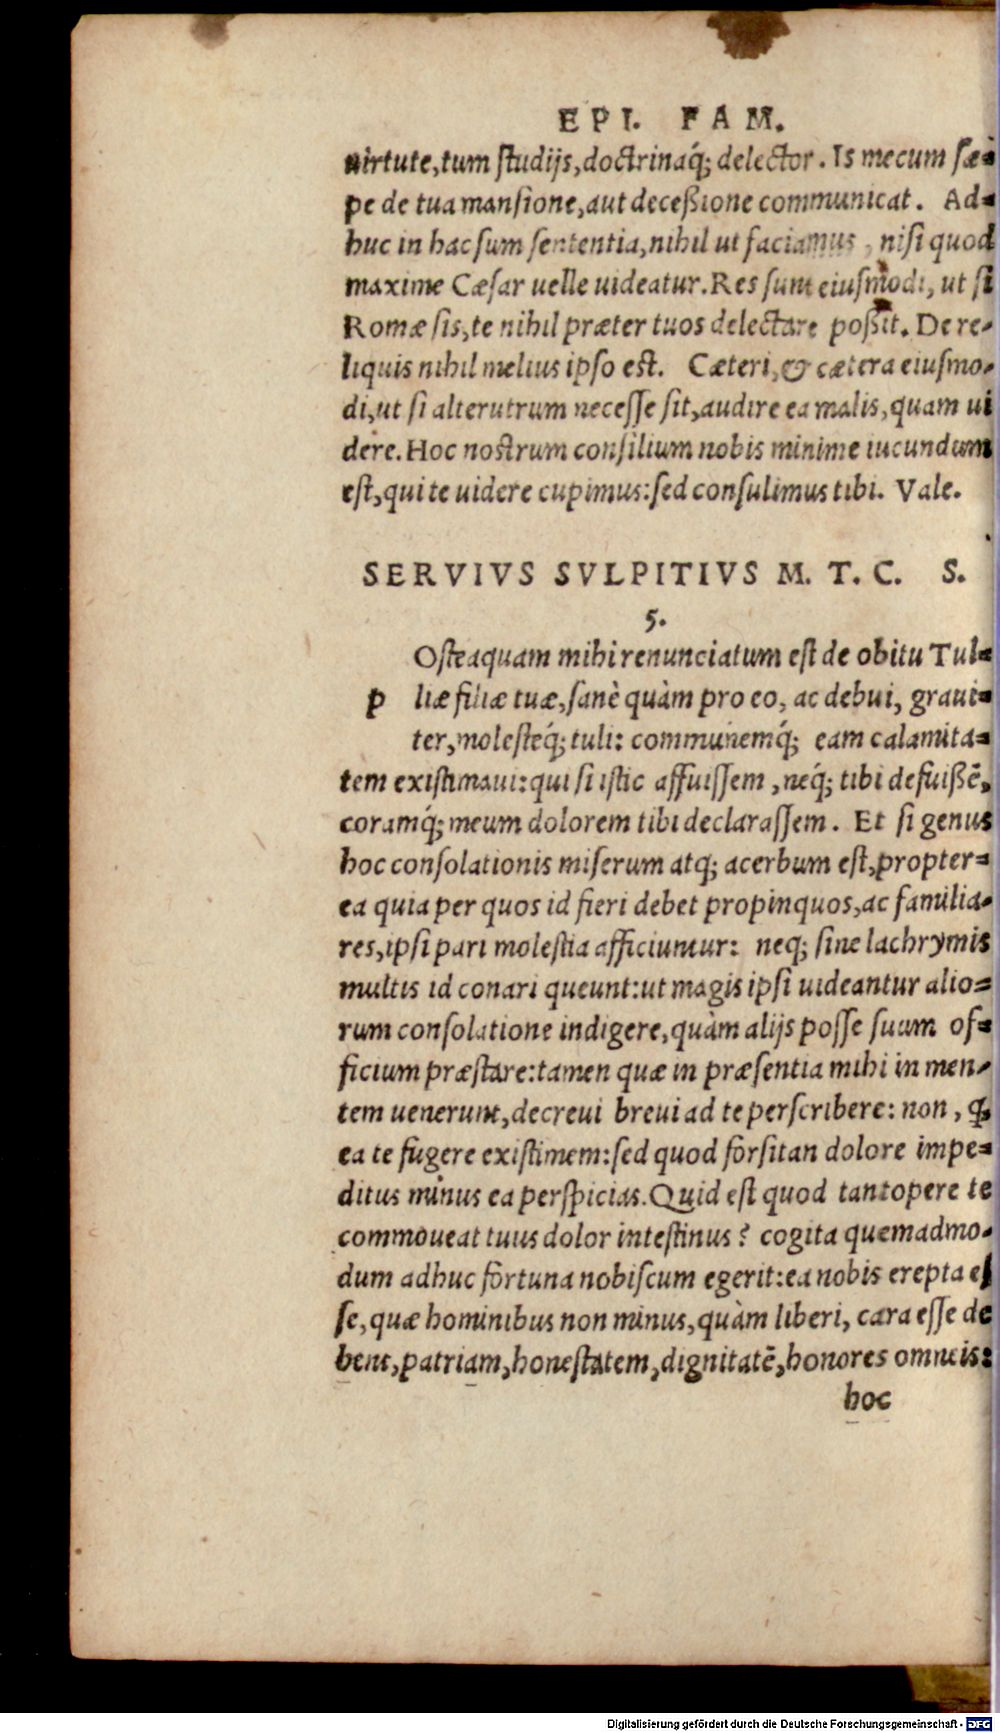 EPI. FAM.
uirtute,tum studijs,doctrinaq́; delector. Is mecum sæ=
pe de tua mansione,aut deceßione communicat. Ad=
huc in hac sum sententia,nihil ut faciamus, nisi quod
maxime Cæsar uelle uideatur. Res sunt eiusmodi, ut si
Romæ sis,te nihil præter tuos delectare poßit. De re-
liquis nihil melius ipso est. Cæteri,& cætera eiusmo-
di,ut si alterutrum necesse sit,audire ea malis,quam ui
dere. Hoc nostrum consilium nobis minime iucundum
est,qui te uidere cupimus:sed consulimus tibi. Vale.
SERVIVS SVLPITIVS M. T. C. S.
5.
Osteaquam mihi renunciatum est de obitu Tul=
p liæ filiæ tuæ,sanè quàm pro eo, ac debui, graui=
ter,molesteq́; tuli: communemq́; eam calamita=
tem existimaui:qui si istic affuissem, neq́; tibi defuißē,
coramq́; meum dolorem tibi declarassem. Et si genus
hoc consolationis miserum atq; acerbum est,propter=
ea quia per quos id fieri debet propinquos,ac familia-
res,ipsi pari molestia afficiuntur: neq; sine lachrymis
multis id conari queunt:ut magis ipsi uideantur alio=
rum consolatione indigere,quàm alijs posse suum of=
ficium præstare:tamen quæ in præsentia mihi in men-
tem uenerunt,decreui breui ad te perscribere: non, ꝙ
ea te fugere existimem:sed quod forsitan dolore impe=
ditus minus ea perspicias. Quid est quod tantopere te
commoueat tuus dolor intestinus? cogita quemadmo-
dum adhuc fortuna nobiscum egerit:ea nobis erepta es
se,quæ hominibus non minus,quàm liberi, cara esse de
bent,patriam,honestatem,dignitatē,honores omneis:
hoc
Digitalisierung gefördert durch die Deutsche Forschungsgemeinschaft - DFG